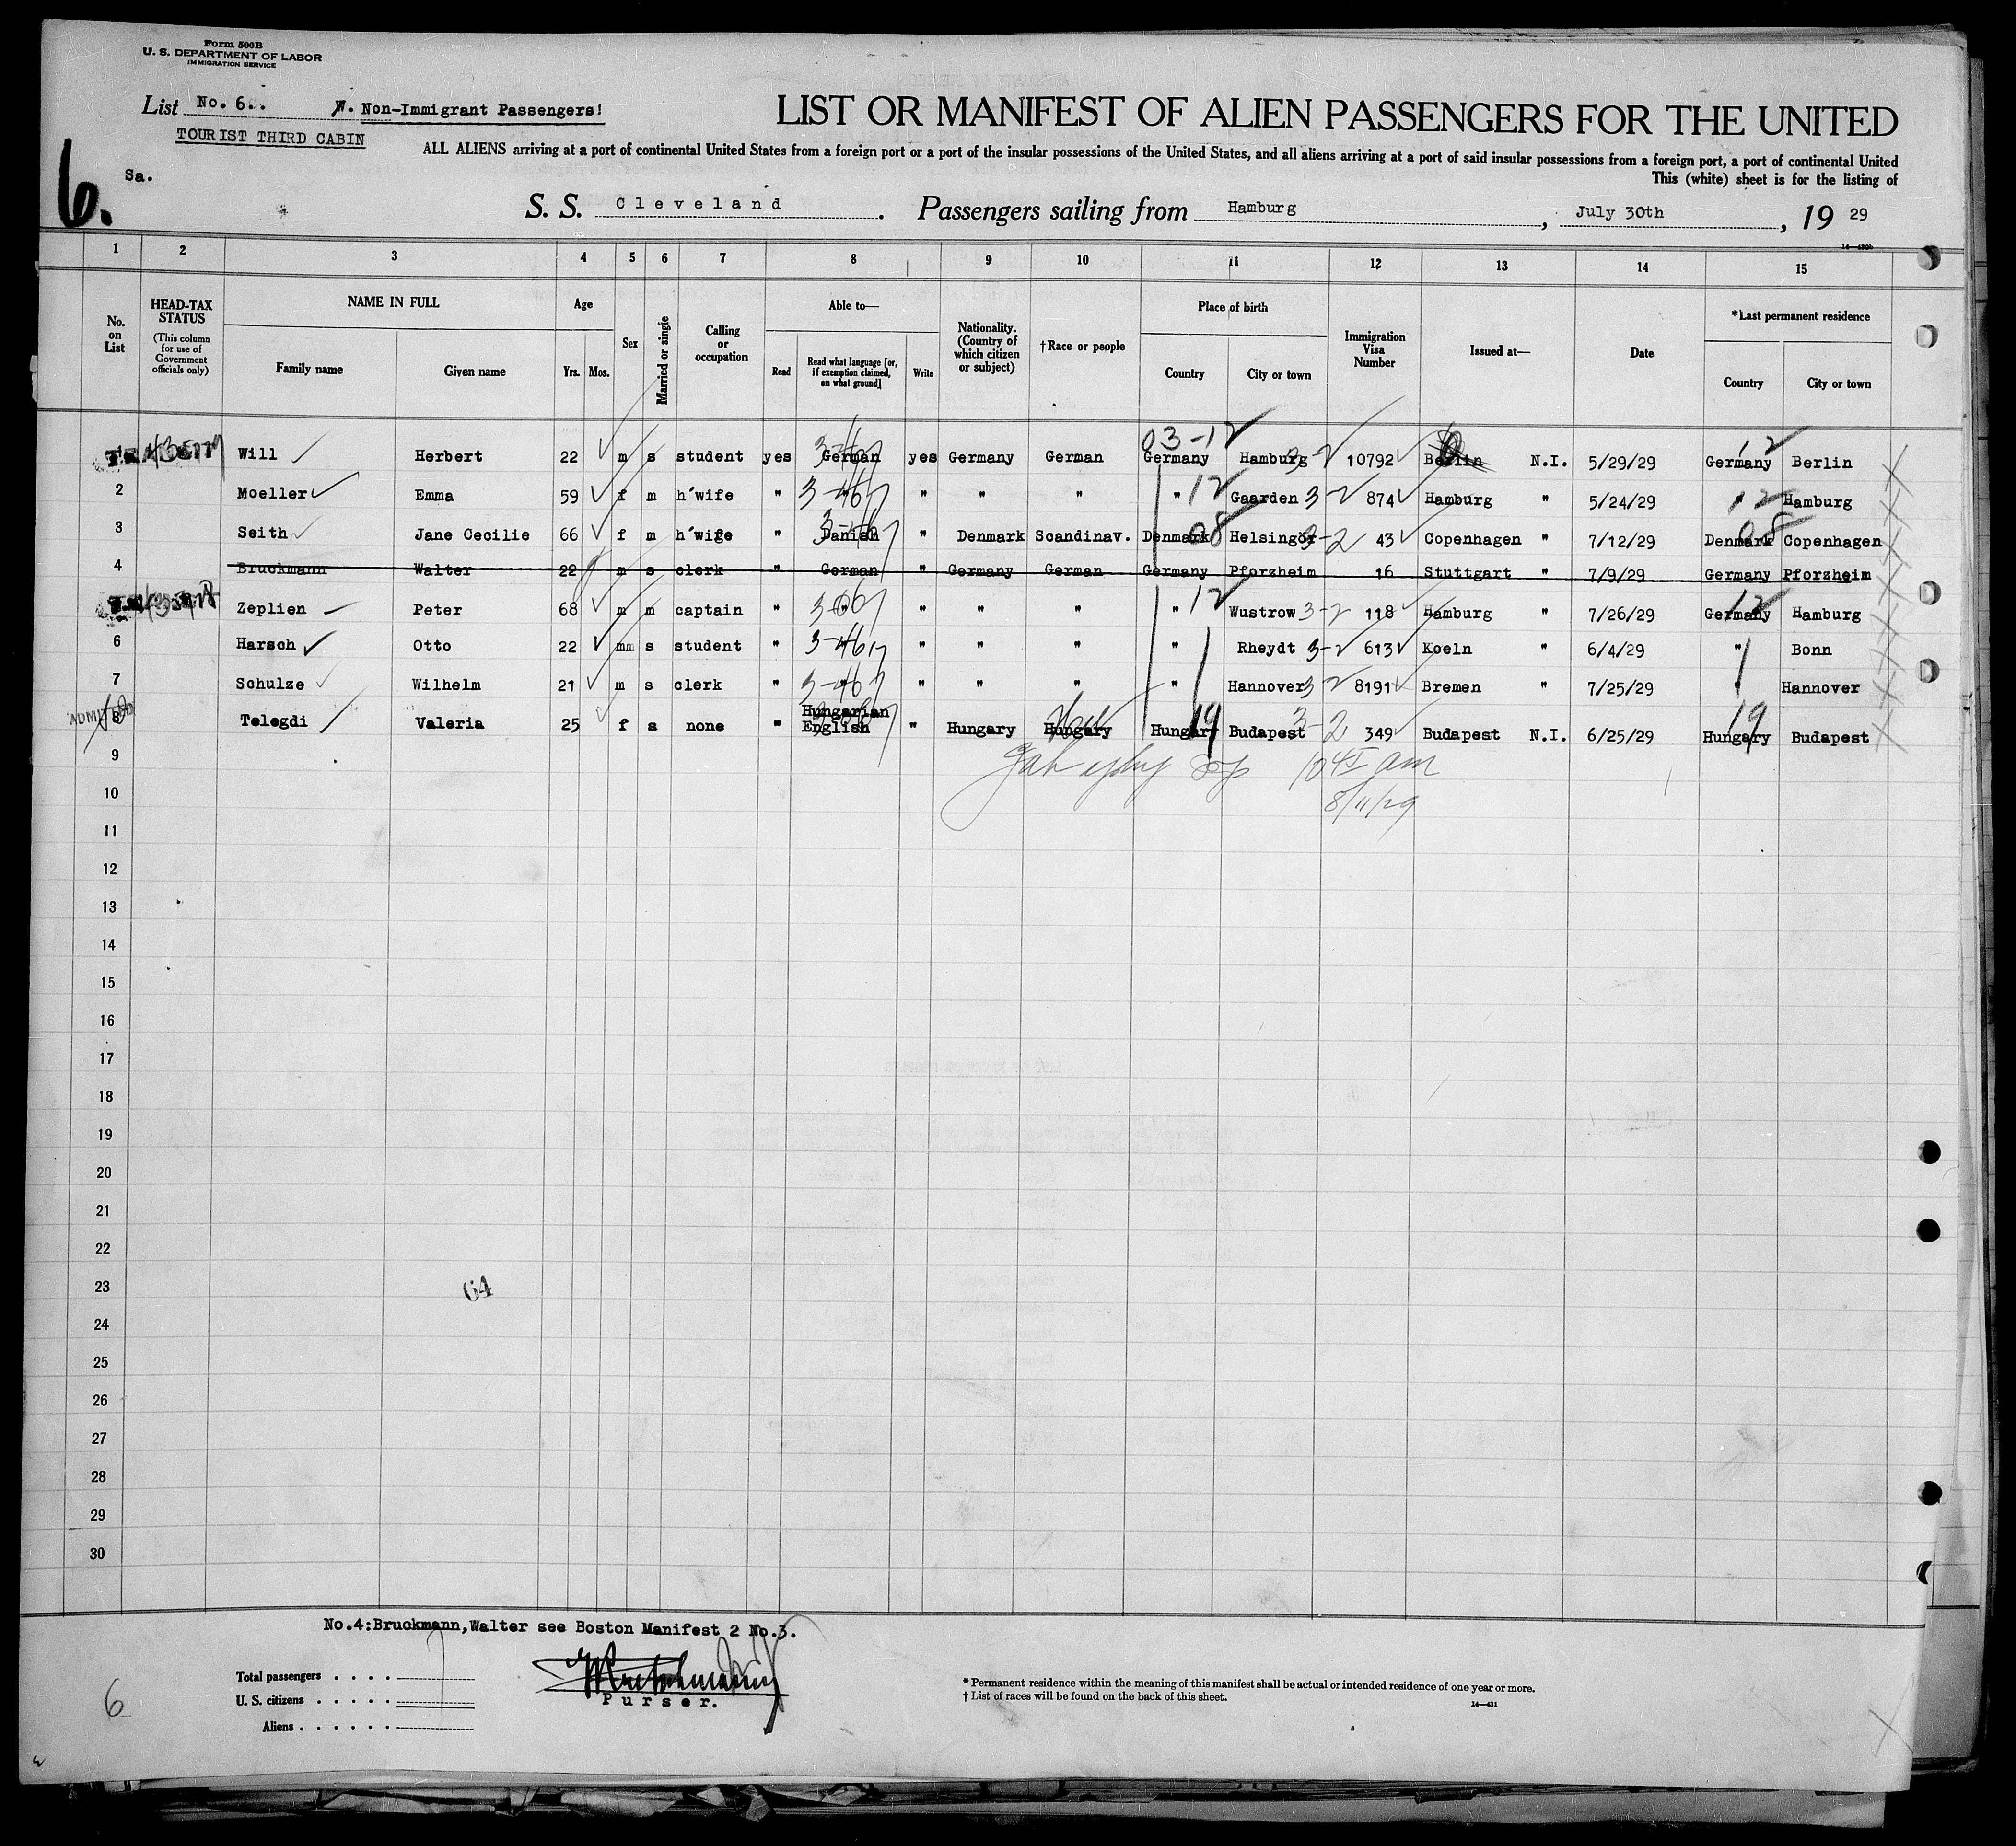 Form 500B
U. S. DEPARTMENT OF LABOR
IMMIGRATION SERVICE
List No. 6.. Non-Immigrant Passengers!
TOURIST THIRD CABIN
LIST OR MANIFEST OF ALIEN PASSENGERS FOR THE UNITED
ALL ALIENS arriving at a port of continental United States from a foreign port or a port of the insular possessions of the United States, and all aliens arriving at a port of said insular possessions from a foreign port, a port of continental United
This (white) sheet is for the listing of
6.
Sa.
S. S. Cleveland . Passengers sailing from Hamburg , July 30th , 19 29
14—430b
1 2 3 4 5 6 7 8 9 10 11 12 13 14 15
No. on List
HEAD-TAX STATUS
(This column for use of Government officials only)
NAME IN FULL
Family name Given name
Age
Yrs. Mos.
Sex
Married or single
Calling or occupation
Able to—
Read Read what language [or, if exemption claimed, on what ground] Write
Nationality. (Country of which citizen or subject)
†Race or people
Place of birth
Country City or town
Immigration Visa Number
Issued at—
Date
*Last permanent residence
Country City or town
03-12
Will Herbert 22 m s student yes German yes Germany German Germany Hamburg 3-2 10792 Berlin N.I. 5/29/29 Germany 12 Berlin
2 Moeller Emma 59 f m h'wife " 3-46 " " " " 12 Gaarden 3-2 874 Hamburg " 5/24/29 " 12 Hamburg
3 Seith Jane Cecilie 66 f m h'wife " Danish " Denmark Scandinav. Denmark 08 Helsingör 3-2 43 Copenhagen " 7/12/29 Denmark 08 Copenhagen
4 Bruckmann Walter 22 m s clerk " German " Germany German Germany Pforzheim 16 Stuttgart " 7/9/29 Germany Pforzheim
Zeplien Peter 68 m m captain " " " " " 12 Wustrow 3-2 118 Hamburg " 7/26/29 Germany 12 Hamburg
6 Harsch Otto 22 m s student " 3-46 " " " " Rheydt 3-2 613 Koeln " 6/4/29 " Bonn
7 Schulze Wilhelm 21 m s clerk " 3-46 " " " " Hannover 3-2 8191 Bremen " 7/25/29 " Hannover
ADMITTED
8 Telegdi Valeria 25 f s none " Hungarian English " Hungary Hungary Hungary 19 Budapest 3-2 349 Budapest N.I. 6/25/29 Hungary 19 Budapest
9
am
10
8/11/29
11
12
13
14
15
16
17
18
19
20
21
22
23
64
24
25
26
27
28
29
30
No.4:Bruckmann,Walter see Boston Manifest 2 No.3.
Total passengers . . . .
U. S. citizens . . . . .
Aliens . . . . . .
Purser.
6
* Permanent residence within the meaning of this manifest shall be actual or intended residence of one year or more.
† List of races will be found on the back of this sheet.
14—431